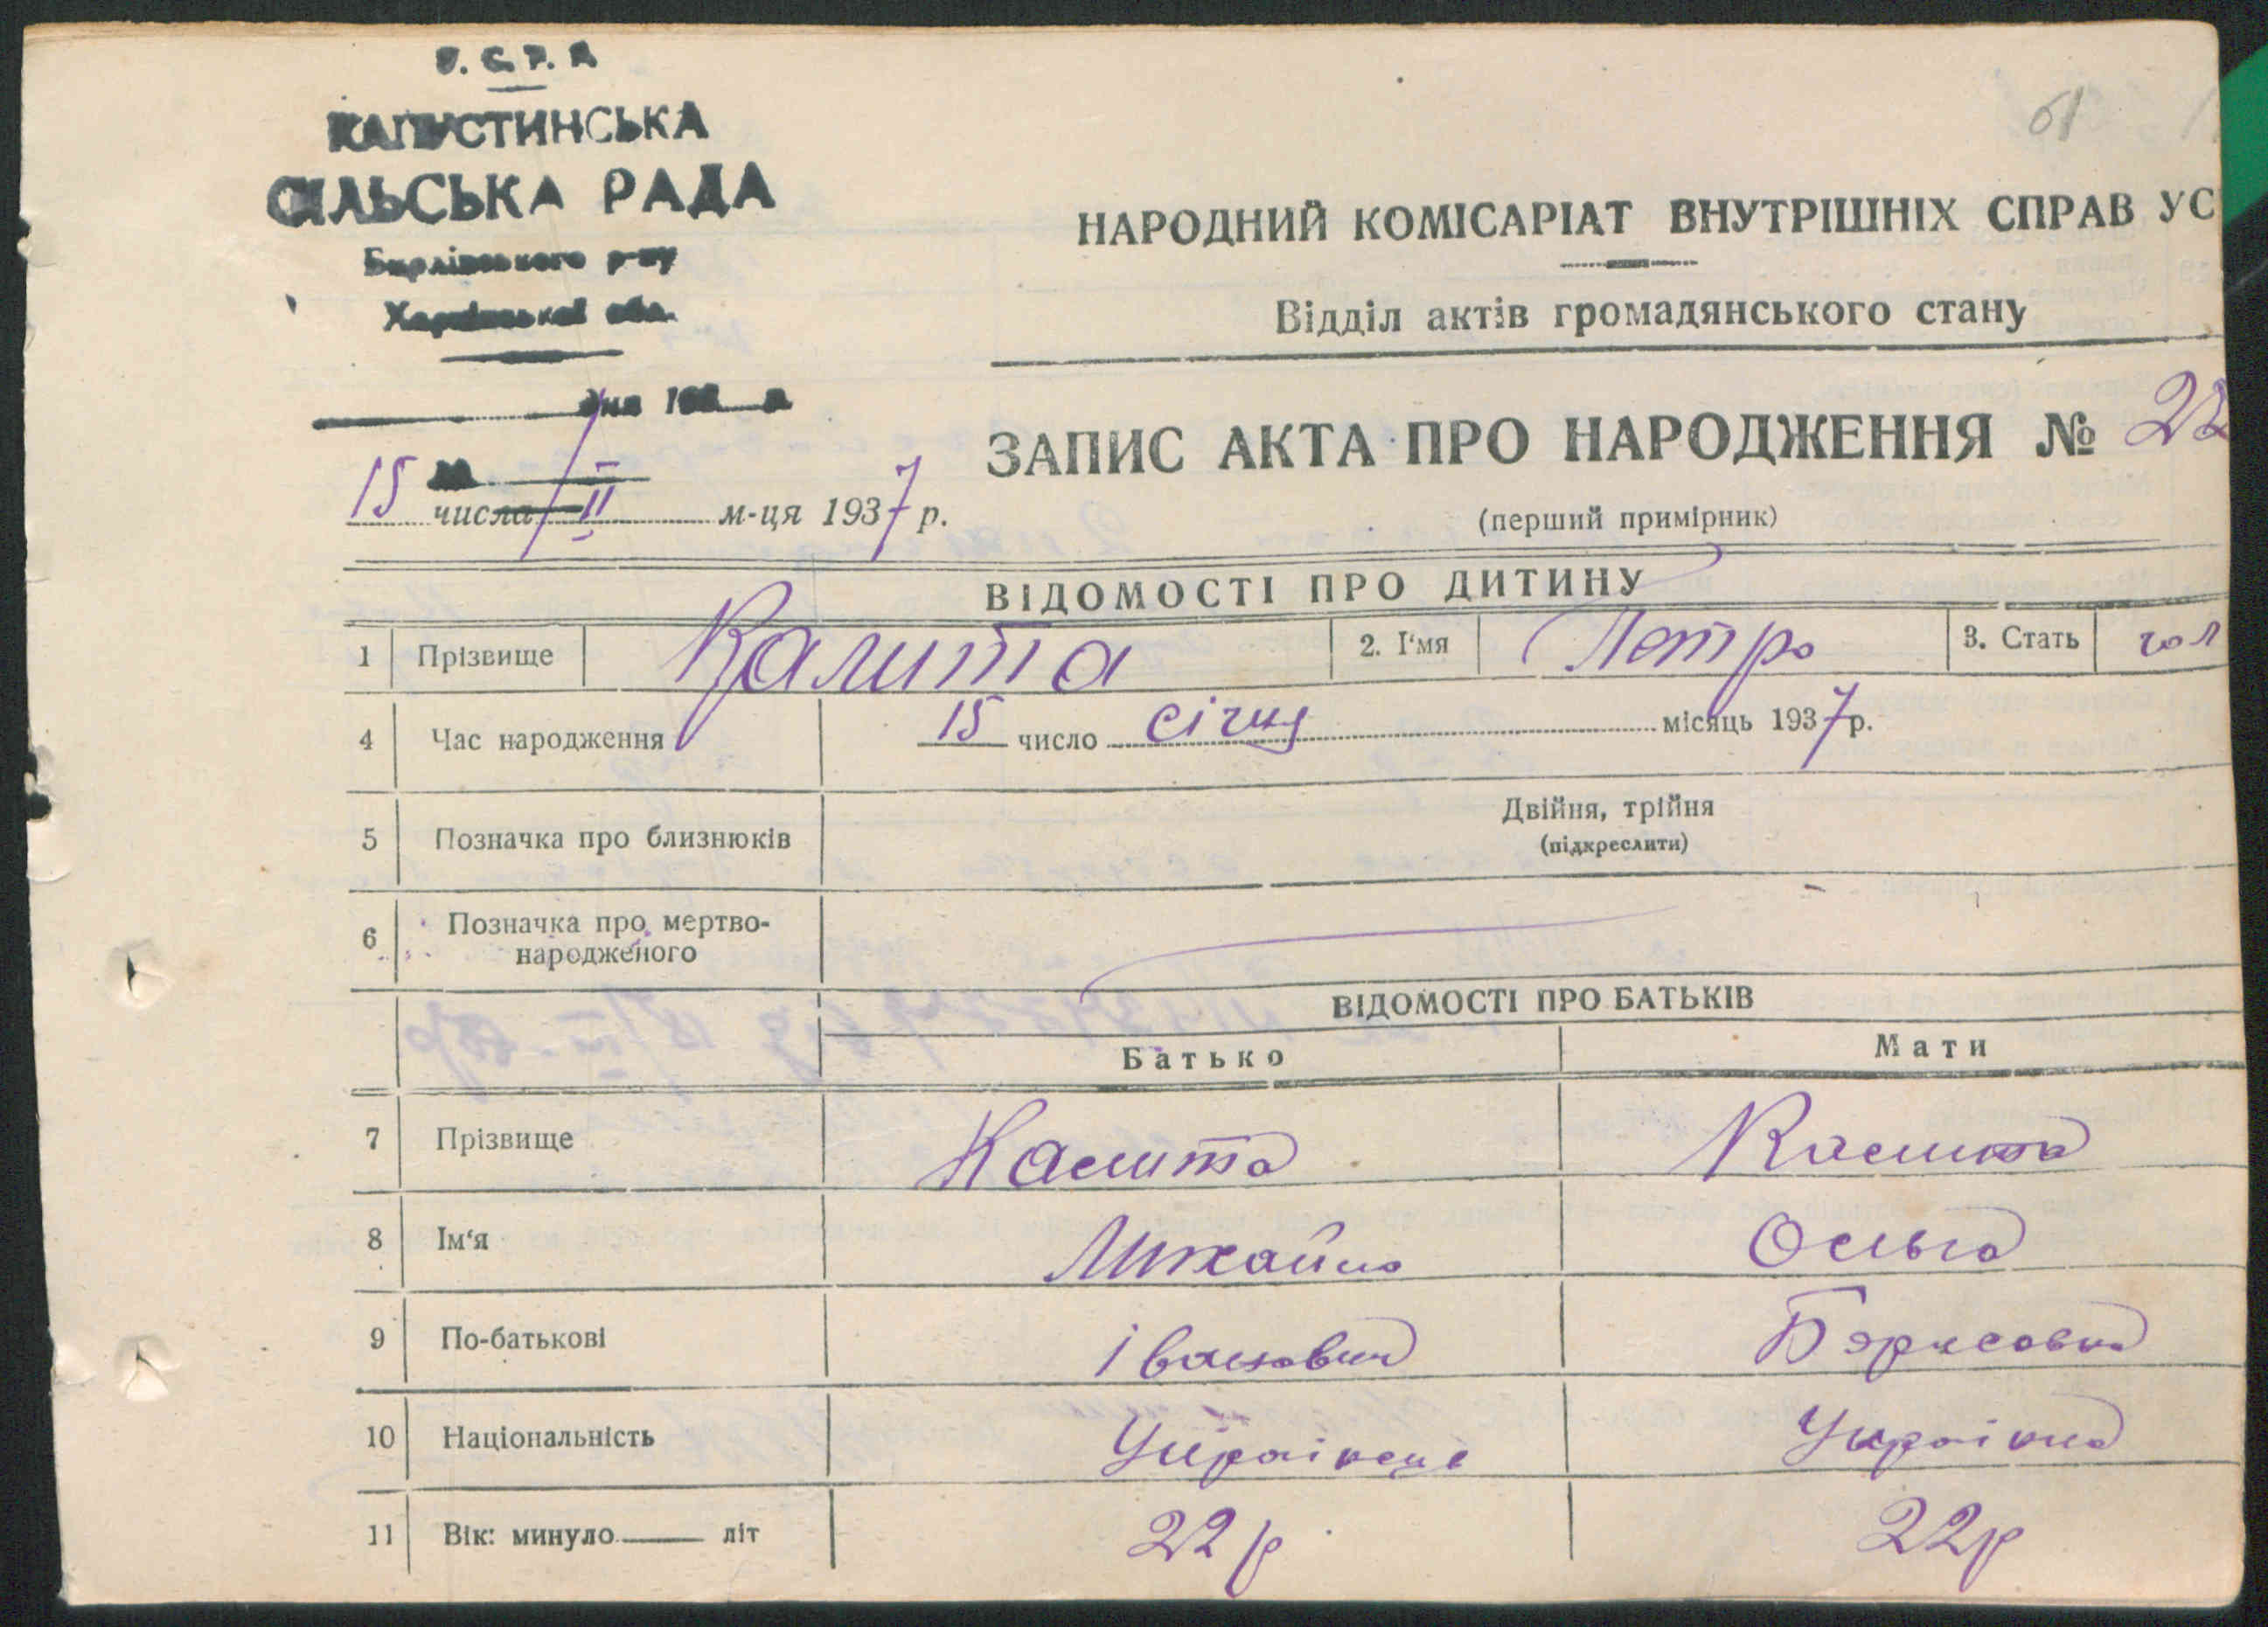 У. С. Р. Р.
КАПУСТИНСЬКА
СІЛЬСЬКА РАДА
р-ну
Харківської обл.
дня 193 р.
№
61
НАРОДНИЙ КОМІСАРІАТ ВНУТРІШНІХ СПРАВ УС
Відділ актів громадянського стану
ЗАПИС АКТА ПРО НАРОДЖЕННЯ № 22
(перший примірник)
15 числа II м-ця 1937 р.
ВІДОМОСТІ ПРО ДИТИНУ
1 Прізвище Калита 2. І'мя Петро 3. Стать чол
4 Час народження 15 число січня місяць 1937 р.
5 Позначка про близнюків Двійня, трійня
(підкреслити)
6 Позначка про мертво-
народженого
ВІДОМОСТІ ПРО БАТЬКІВ
Батько Мати
7 Прізвище Калита Калита
8 Ім'я Михайло Ольга
9 По-батькові Іванович Борисовна
10 Національність Українець Українка
11 Вік: минуло літ 22 р 22 р